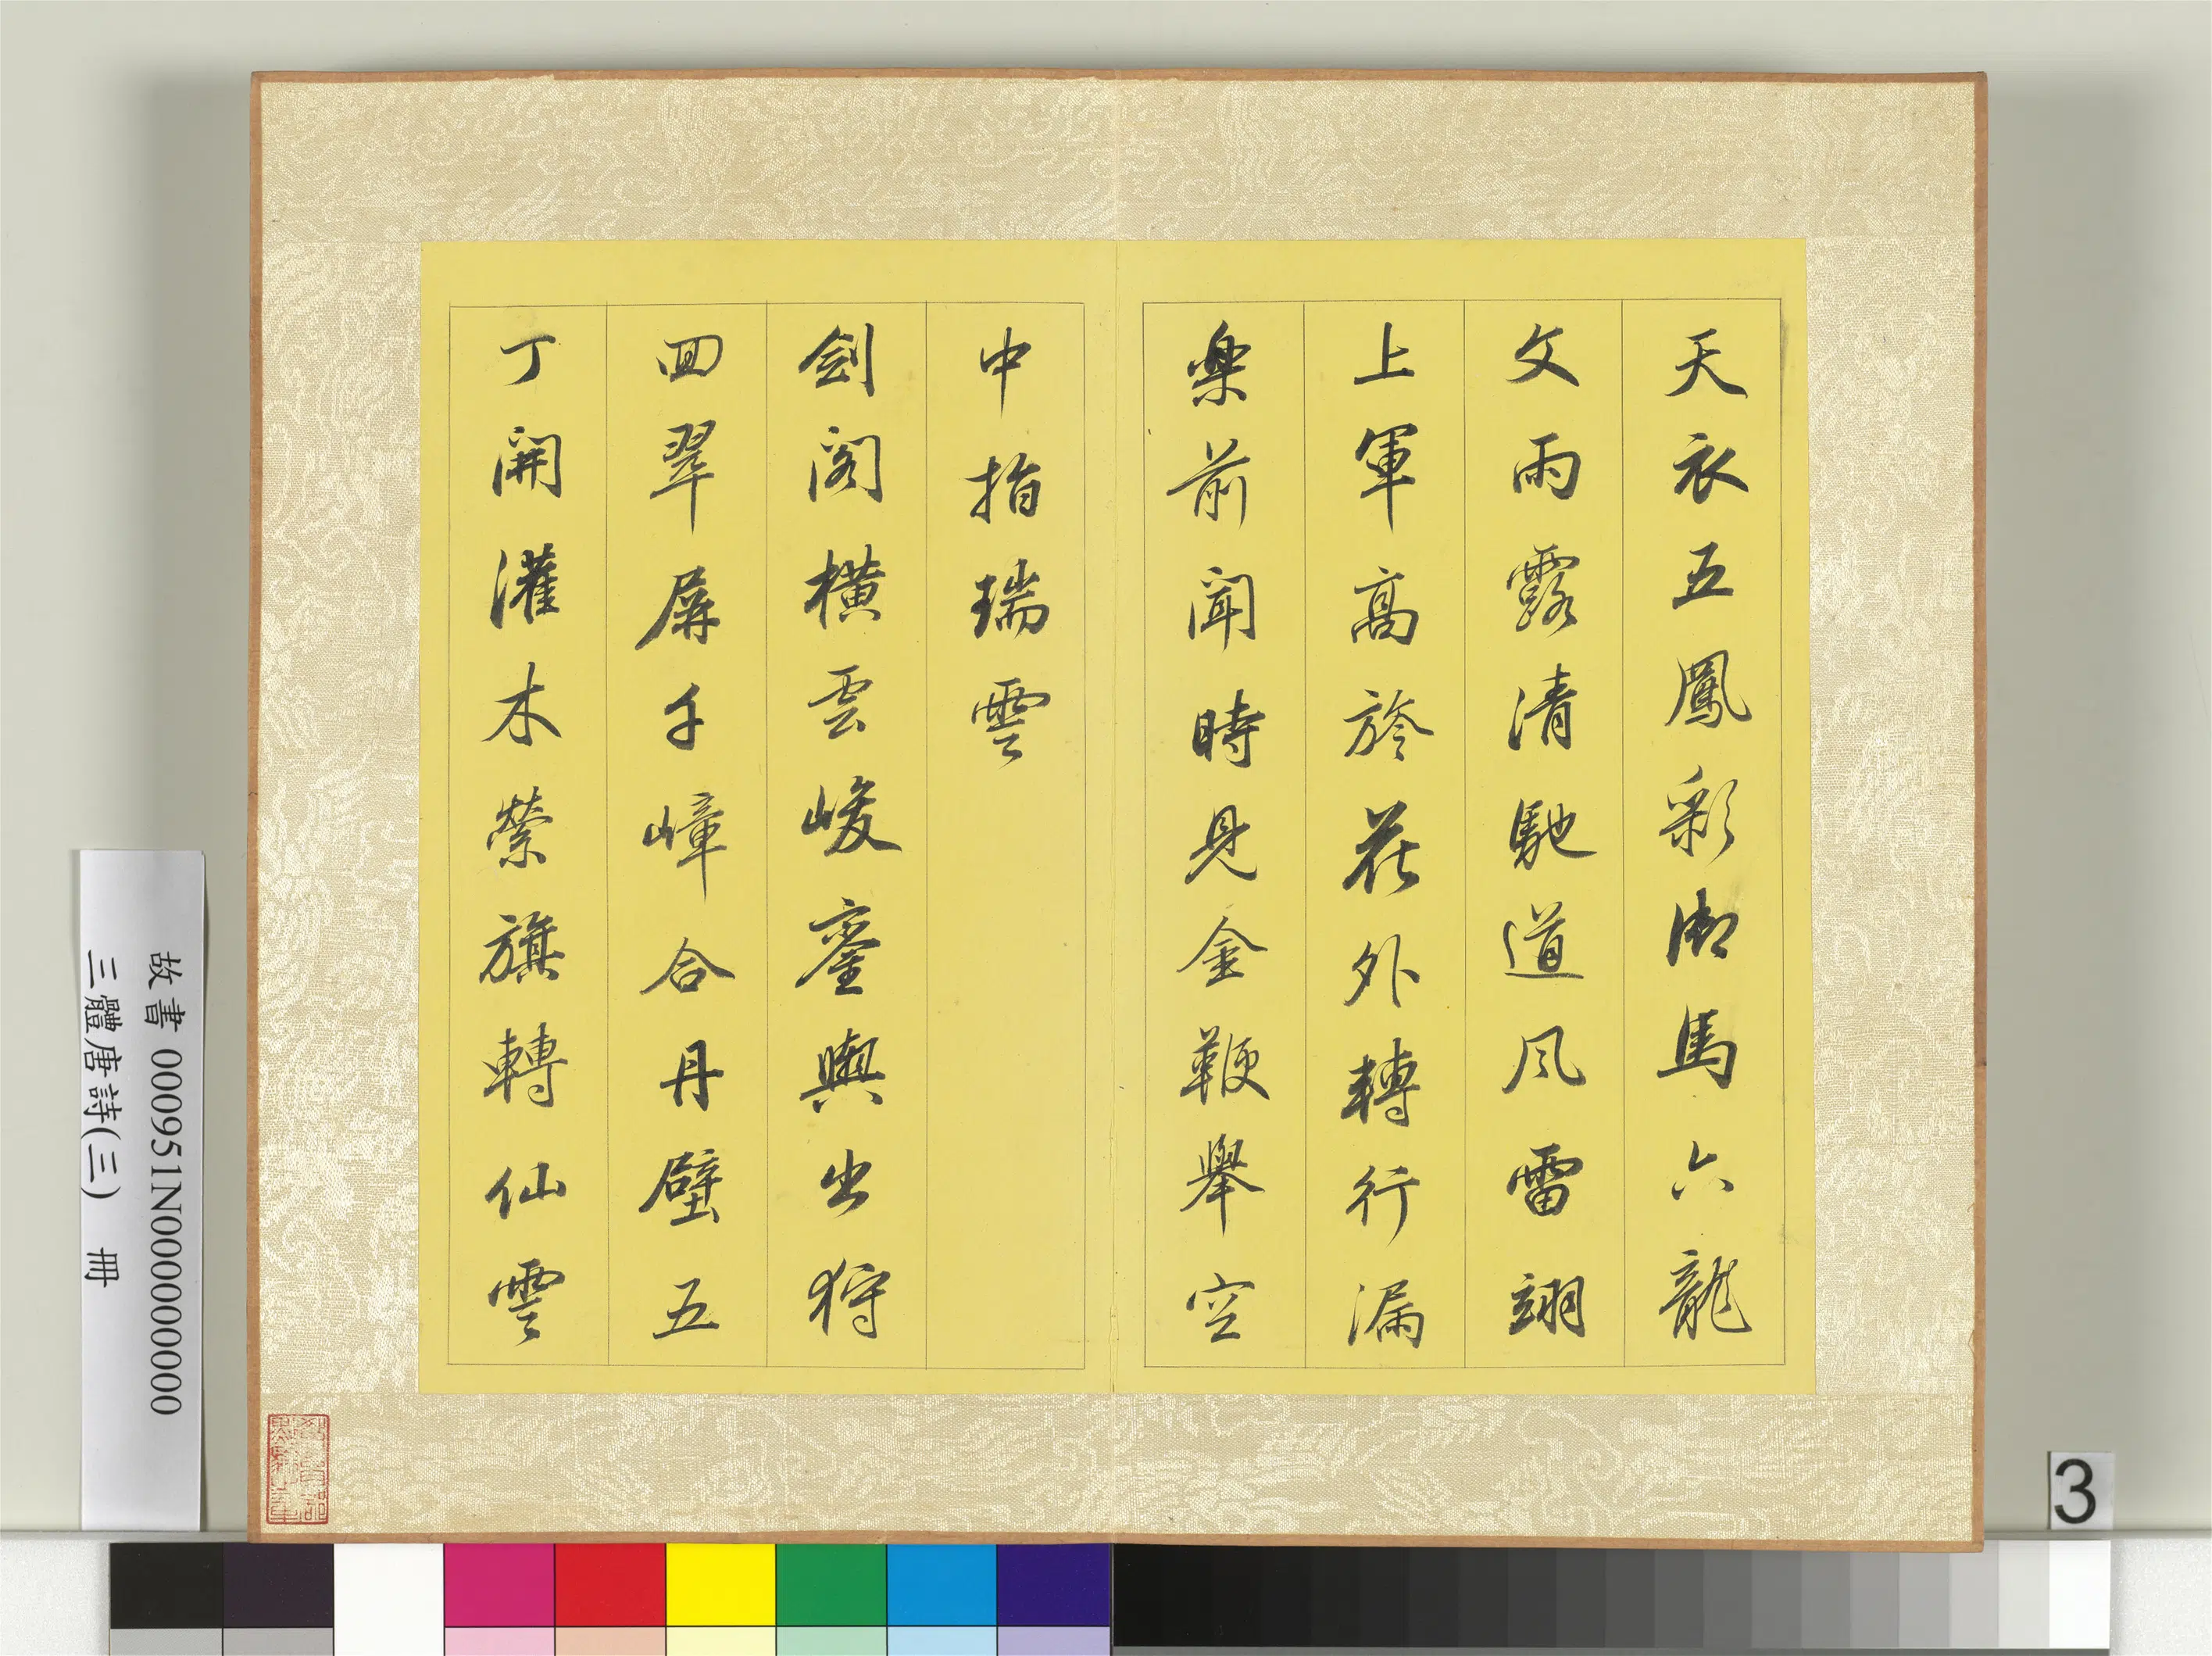 天衣五鳳彩御馬六龍
文雨露清馳道風雷翊
上軍高旍花外轉行漏
樂前聞時見金鞭舉空
中指瑞雲
劍閣橫雲峻鑾輿出狩
回翠屏千嶂合丹壁五
丁開灌木縈旗轉仙雲
故書 000951N000000000
三體唐詩(三) 冊
3